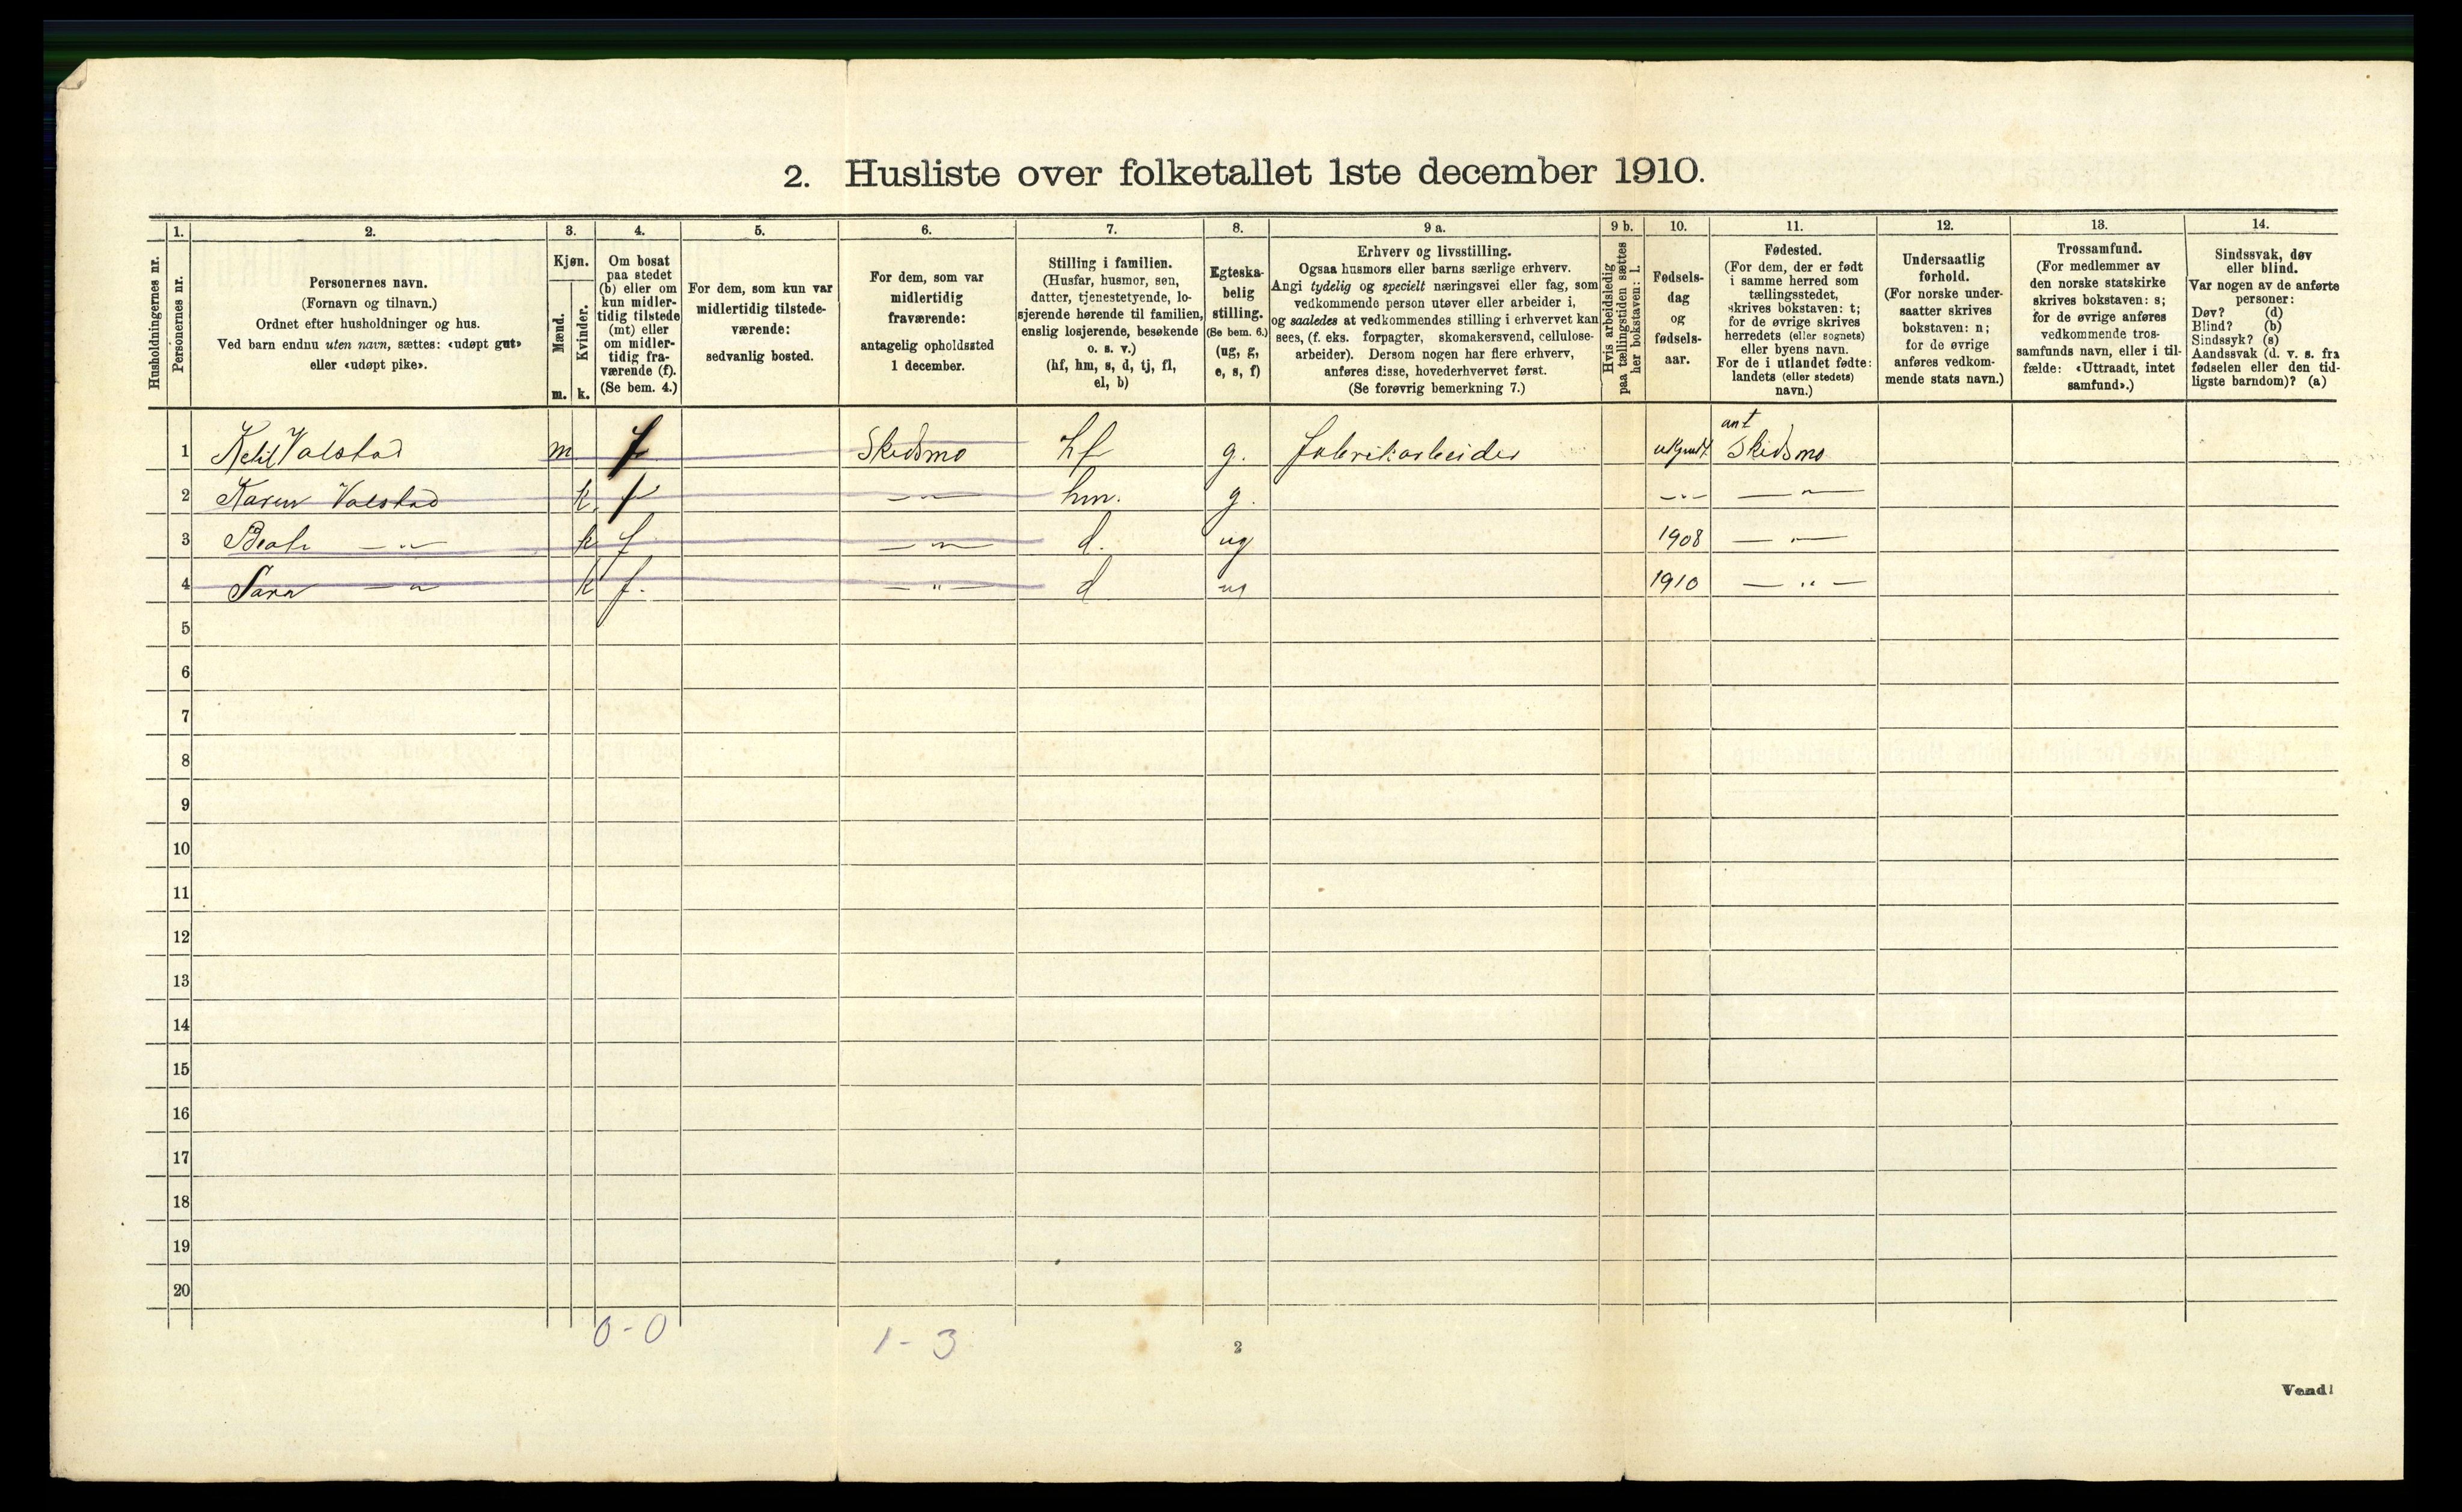 2. Husliste over folketallet 1ste december 1910.
Husholdningernes nr.
1.
Personernes nr.
2.
Personernes navn.
(Fornavn og tilnavn.)
Ordnet efter husholdninger og hus.
Ved barn endnu uten navn, sættes: «udøpt gut»
eller «udøpt pike».
3.
Kjøn.
Mænd.
Kvinder.
m. k.
4.
Om bosat
paa stedet
(b) eller om
kun midler-
tidig tilstede
(mt) eller
om midler-
tidig fra-
værende (f).
(Se bem. 4.)
5.
For dem, som kun var
midlertidig tilstede-
værende:
sedvanlig bosted.
6.
For dem, som var
midlertidig
fraværende:
antagelig opholdssted
1 december.
7.
Stilling i familien.
(Husfar, husmor, søn,
datter, tjenestetyende, lo-
sjerende hørende til familien,
enslig losjerende, besøkende
o. s. v.)
(hf, hm, s, d, tj, fl,
el, b)
8.
Egteska-
belig
stilling.
(Se bem. 6.)
(ug, g,
e, s, f)
9 a.
Erhverv og livsstilling.
Ogsaa husmors eller barns særlige erhverv.
Angi tydelig og specielt næringsvei eller fag, som
vedkommende person utøver eller arbeider i,
og saaledes at vedkommendes stilling i erhvervet kan
sees, (f. eks. forpagter, skomakersvend, cellulose-
arbeider). Dersom nogen har flere erhverv,
anføres disse, hovederhvervet først.
(Se forøvrig bemerkning 7.)
9 b.
Hvis arbeidsledig
paa tællingstiden sættes
her bokstaven: l.
10.
Fødsels-
dag
og
fødsels-
aar.
11.
Fødested.
(For dem, der er født
i samme herred som
tællingsstedet,
skrives bokstaven: t;
for de øvrige skrives
herredets (eller sognets)
eller byens navn.
For de i utlandet fødte:
landets (eller stedets)
navn.)
12.
Undersaatlig
forhold.
(For norske under-
saatter skrives
bokstaven: n;
for de øvrige
anføres vedkom-
mende stats navn.)
13.
Trossamfund.
(For medlemmer av
den norske statskirke
skrives bokstaven: s;
for de øvrige anføres
vedkommende tros-
samfunds navn, eller i til-
fælde: «Uttraadt, intet
samfund».)
14.
Sindssvak, døv
eller blind.
Var nogen av de anførte
personer:
Døv? (d)
Blind? (b)
Sindssyk? (s)
Aandssvak (d. v. s. fra
fødselen eller den tid-
ligste barndom)? (a)
ant
1 Ketil Valstad m f Skedsmo hf g. fabrikarbeider Skedsmo
2 Karen Valstad k f —"— hm. g. —"— —"—
3 k f —"— d. ug 1908 —"—
4 Sara —"— k f. —"— d ug 1910 —"—
5
6
7
8
9
10
11
12
13
14
15
16
17
18
19
20
0 - 0 1 - 3
2
Vend!